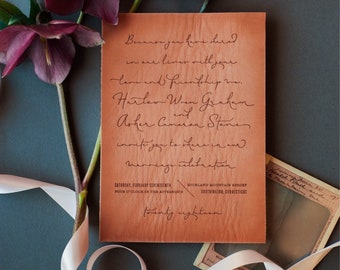 Because you have shared
in our lives with your
love and friendship we,
Harlow Wren Graham
and
Asher Cameron Stone
invite you to share in our
marriage celebration
SATURDAY, FEBRUARY SEVENTEENTH
FOUR O'CLOCK IN THE AFTERNOON
MOUNTAIN RESORT
CONNECTICUT
twenty eighteen